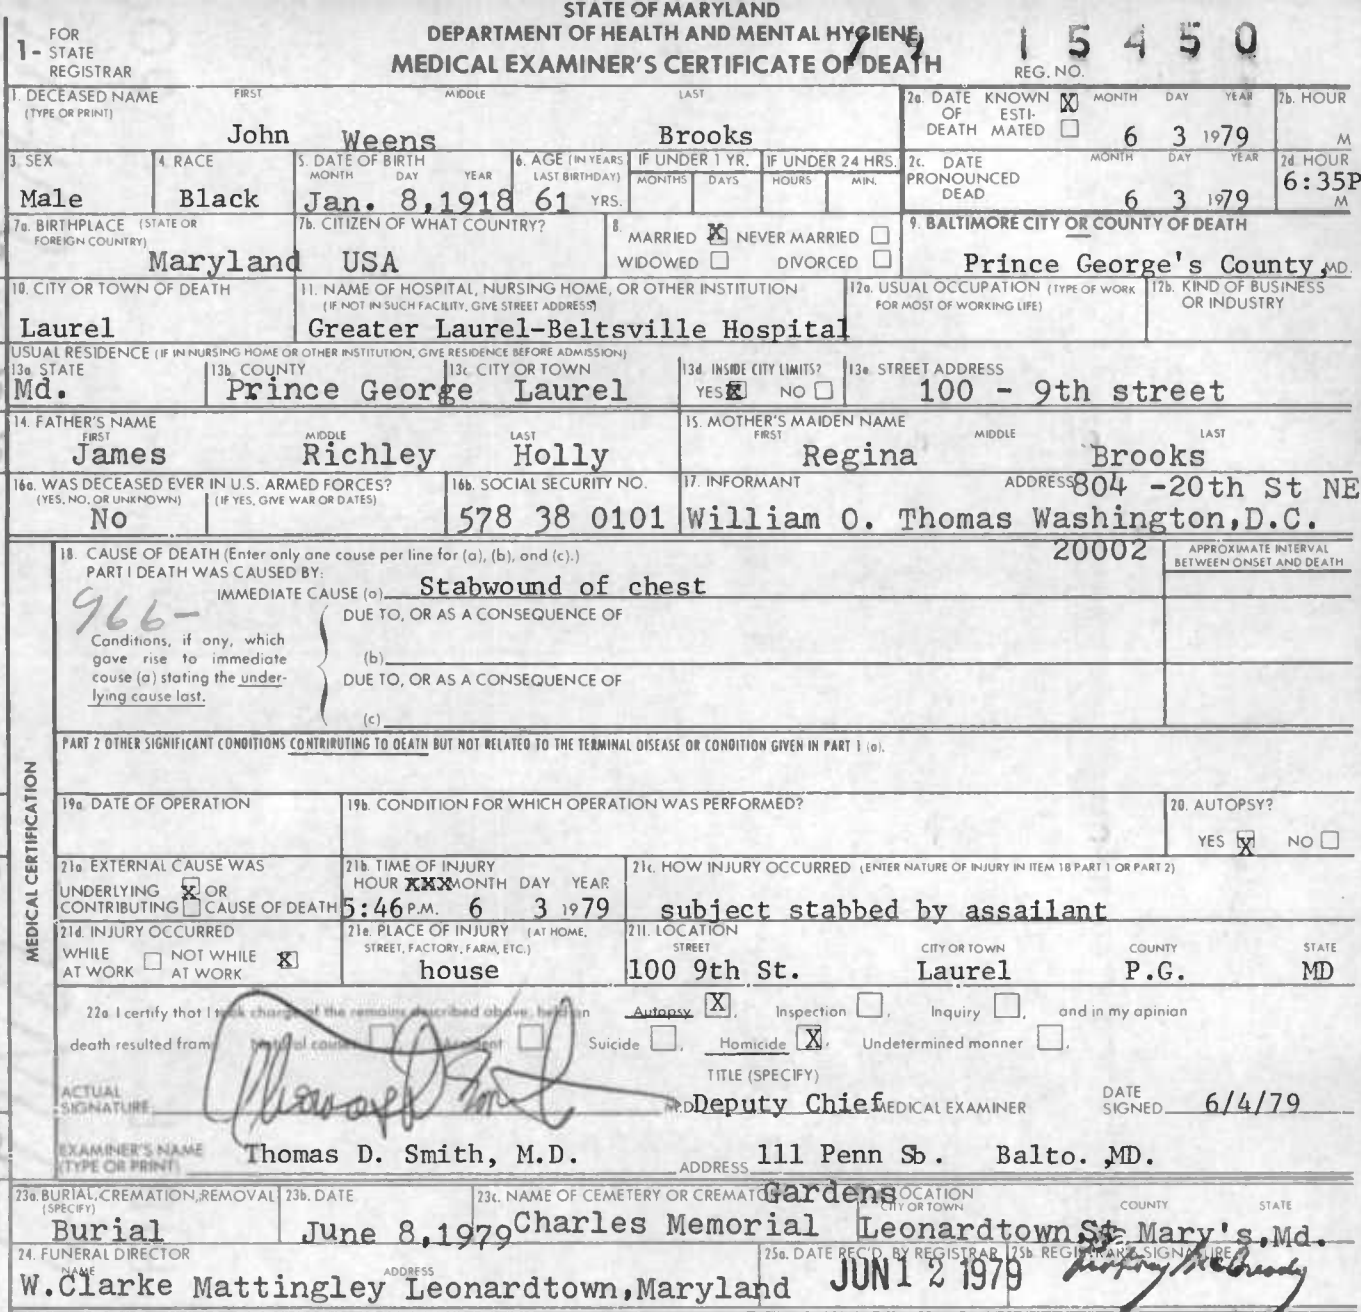 STATE OF MARYLAND
DEPARTMENT OF HEALTH AND MENTAL HYGIENE
MEDICAL EXAMINER'S CERTIFICATE OF DEATH
1- FOR STATE REGISTRAR
79 15450
REG. NO.
1. DECEASED NAME (TYPE OR PRINT) FIRST MIDDLE LAST
John Weens Brooks
2a. DATE OF DEATH KNOWN X ESTIMATED MONTH DAY YEAR
6 3 1979
2b. HOUR M
3. SEX
Male
4. RACE
Black
5. DATE OF BIRTH MONTH DAY YEAR
Jan. 8,1918
6. AGE (IN YEARS LAST BIRTHDAY)
61 YRS.
IF UNDER 1 YR. MONTHS DAYS
IF UNDER 24 HRS. HOURS MIN.
2c. DATE PRONOUNCED DEAD MONTH DAY YEAR
6 3 1979
2d HOUR
6:35P M
7a. BIRTHPLACE (STATE OR FOREIGN COUNTRY)
Maryland
7b. CITIZEN OF WHAT COUNTRY?
USA
8. MARRIED X NEVER MARRIED
WIDOWED DIVORCED
9. BALTIMORE CITY OR COUNTY OF DEATH
Prince George's County, MD.
10. CITY OR TOWN OF DEATH
Laurel
11. NAME OF HOSPITAL, NURSING HOME, OR OTHER INSTITUTION
(IF NOT IN SUCH FACILITY, GIVE STREET ADDRESS)
Greater Laurel-Beltsville Hospital
12a. USUAL OCCUPATION (TYPE OF WORK FOR MOST OF WORKING LIFE)
12b. KIND OF BUSINESS OR INDUSTRY
USUAL RESIDENCE (IF IN NURSING HOME OR OTHER INSTITUTION, GIVE RESIDENCE BEFORE ADMISSION)
13a STATE
Md.
13b. COUNTY
Prince George
13c CITY OR TOWN
Laurel
13d. INSIDE CITY LIMITS?
YES X NO
13e. STREET ADDRESS
100 - 9th street
14. FATHER'S NAME FIRST MIDDLE LAST
James Richley Holly
15. MOTHER'S MAIDEN NAME FIRST MIDDLE LAST
Regina Brooks
16a. WAS DECEASED EVER IN U.S. ARMED FORCES?
(YES, NO, OR UNKNOWN) (IF YES, GIVE WAR OR DATES)
No
16b. SOCIAL SECURITY NO.
578 38 0101
17. INFORMANT ADDRESS
804 -20th St NE
William O. Thomas Washington,D.C.
20002
MEDICAL CERTIFICATION
18. CAUSE OF DEATH (Enter only one couse per line for (a), (b), and (c).)
PART I DEATH WAS CAUSED BY:
APPROXIMATE INTERVAL BETWEEN ONSET AND DEATH
IMMEDIATE CAUSE (a) Stabwound of chest
966-
Conditions, if any, which gave rise to immediate cause (a) stating the underlying cause last.
DUE TO, OR AS A CONSEQUENCE OF
(b)
DUE TO, OR AS A CONSEQUENCE OF
(c)
PART 2 OTHER SIGNIFICANT CONDITIONS CONTRIBUTING TO DEATH BUT NOT RELATED TO THE TERMINAL DISEASE OR CONDITION GIVEN IN PART 1 (a).
19a. DATE OF OPERATION
19b. CONDITION FOR WHICH OPERATION WAS PERFORMED?
20. AUTOPSY?
YES X NO
21a EXTERNAL CAUSE WAS
UNDERLYING X OR
CONTRIBUTING CAUSE OF DEATH
21b. TIME OF INJURY
HOUR XXX MONTH DAY YEAR
5:46 P.M. 6 3 1979
21c. HOW INJURY OCCURRED (ENTER NATURE OF INJURY IN ITEM 18 PART 1 OR PART 2)
subject stabbed by assailant
21d. INJURY OCCURRED
WHILE AT WORK NOT WHILE AT WORK X
21e. PLACE OF INJURY (AT HOME, STREET, FACTORY, FARM, ETC.)
house
21f. LOCATION
STREET CITY OR TOWN COUNTY STATE
100 9th St. Laurel P.G. MD
22a I certify that I took charge of the remains described above, held an Autopsy X, Inspection, Inquiry, and in my opinion
death resulted from Natural causes Accident Suicide, Homicide X, Undetermined manner.
TITLE (SPECIFY)
ACTUAL SIGNATURE M.D. Deputy Chief MEDICAL EXAMINER DATE SIGNED 6/4/79
EXAMINER'S NAME (TYPE OR PRINT) Thomas D. Smith, M.D. ADDRESS 111 Penn St. Balto.,MD.
23a. BURIAL, CREMATION, REMOVAL (SPECIFY)
Burial
23b. DATE
June 8,1979
23c. NAME OF CEMETERY OR CREMATO
Charles Memorial Gardens
LOCATION CITY OR TOWN COUNTY STATE
Leonardtown,St. Mary's,Md.
24. FUNERAL DIRECTOR
NAME ADDRESS
W.Clarke Mattingley Leonardtown,Maryland
25a. DATE REC'D. BY REGISTRAR
JUN 12 1979
25b. REGISTRAR'S SIGNATURE